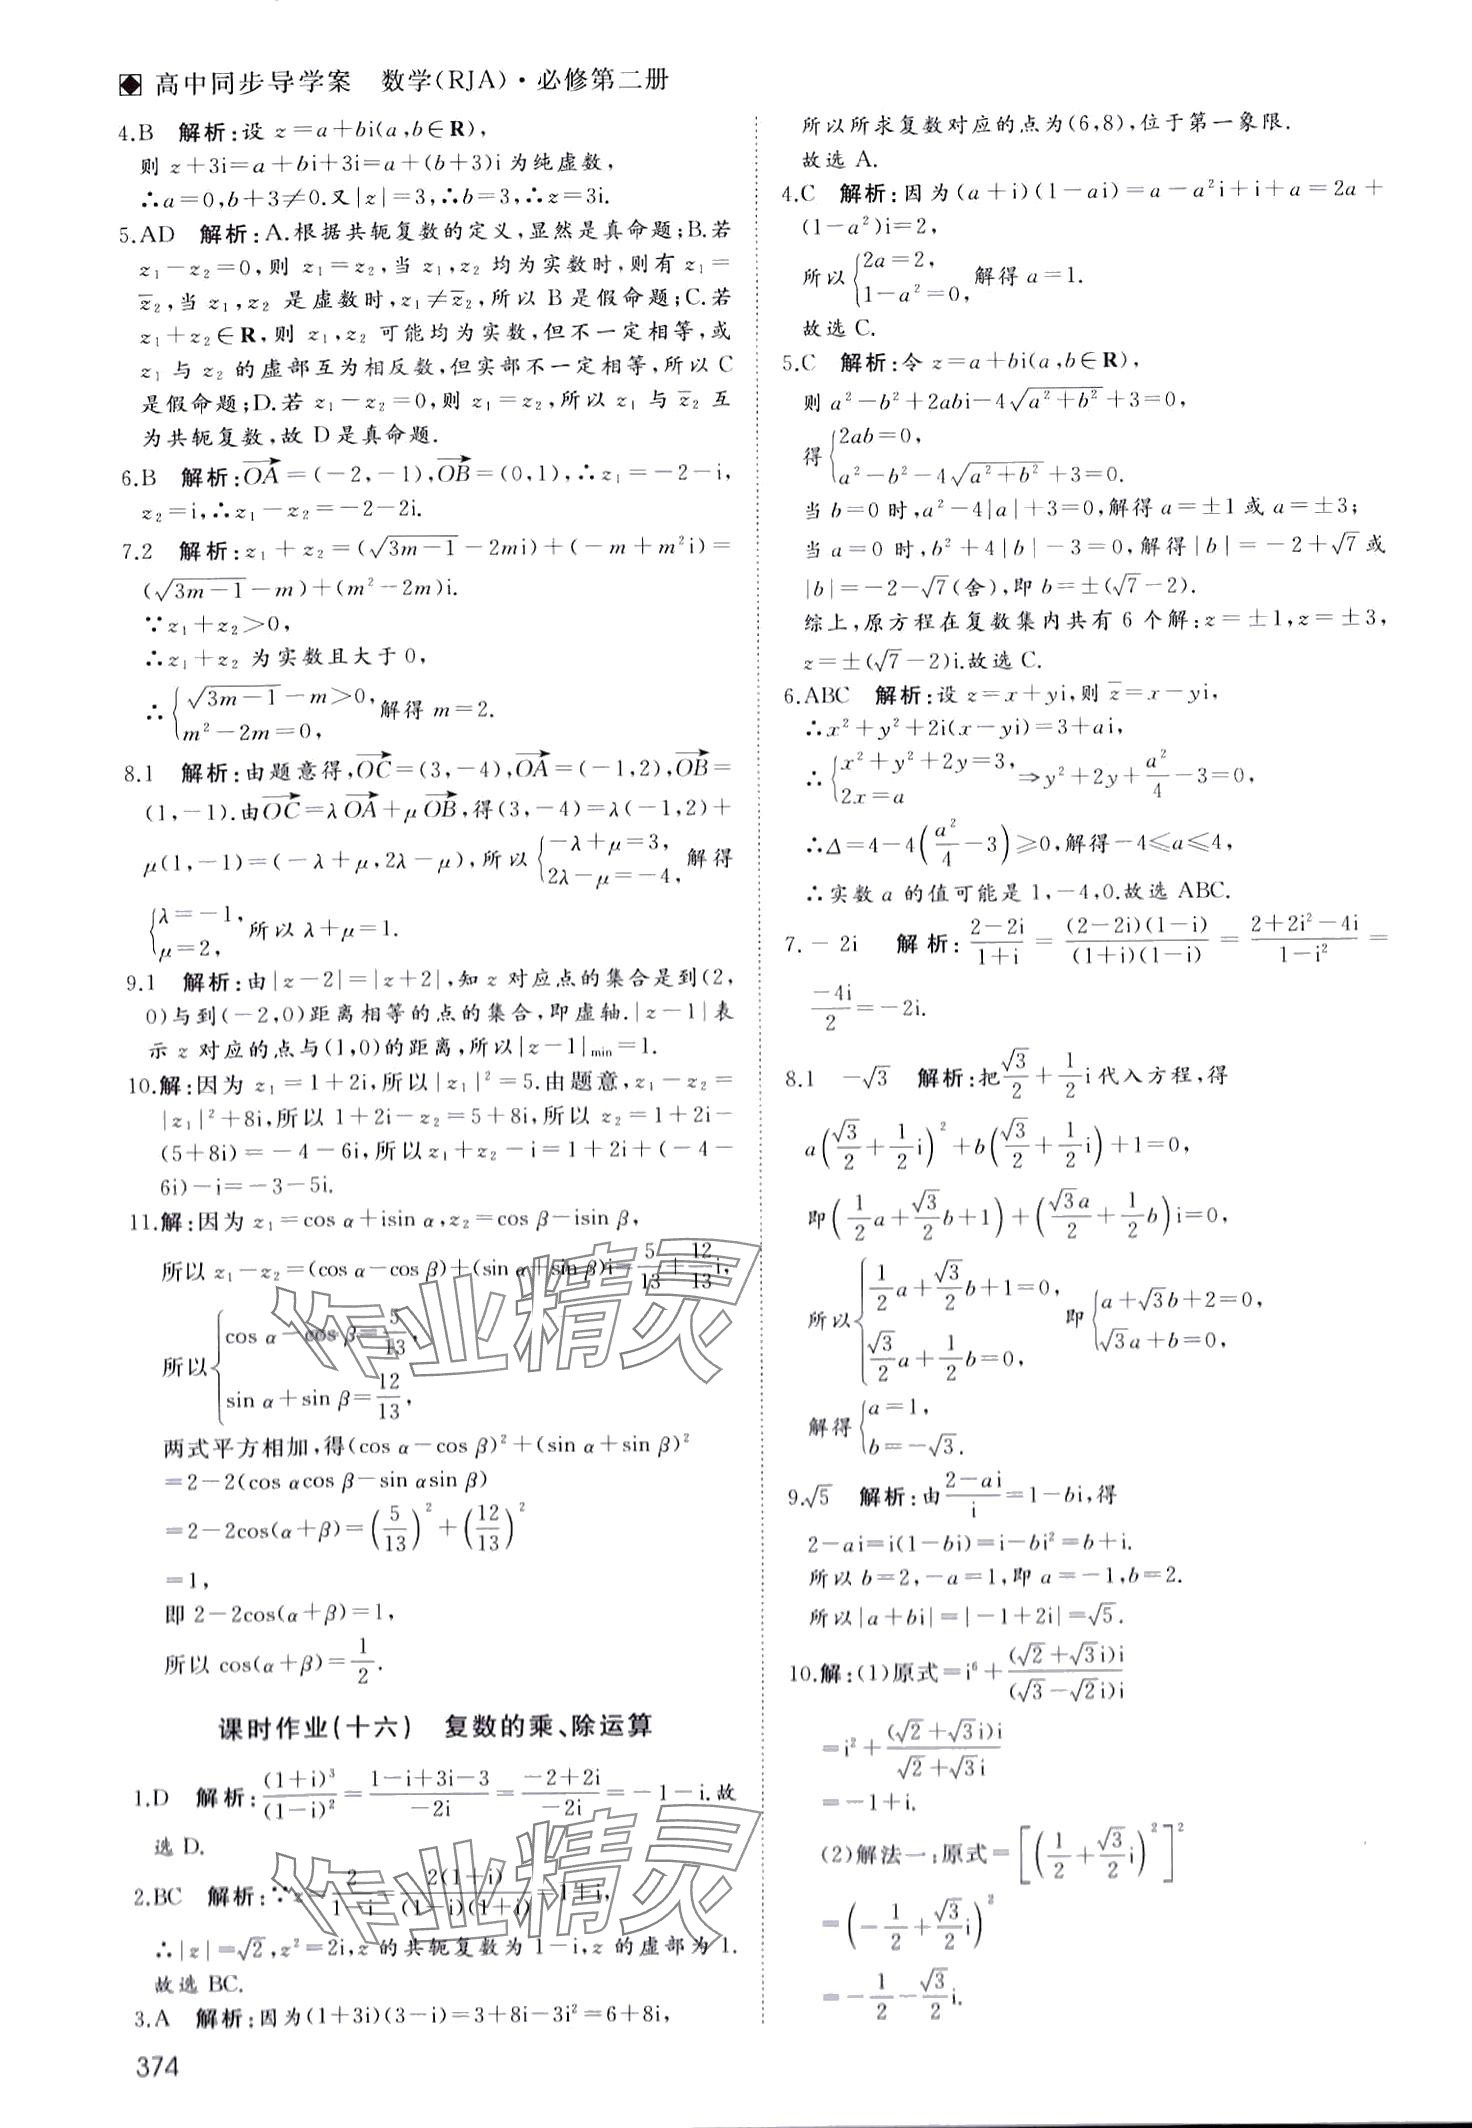 高中同步导学案 数学(RJA)·必修第二册
4.B 解析:设 z=a+bi(a,b∈R),
则 z+3i=a+bi+3i=a+(b+3)i 为纯虚数,
∴a=0,b+3≠0.又|z|=3,∴b=3,∴z=3i.
5.AD 解析:A.根据共轭复数的定义,显然是真命题;B.若
z₁-z₂=0,则 z₁=z₂,当 z₁,z₂ 均为实数时,则有 z₁=
z̅₂,当 z₁,z₂ 是虚数时,z₁≠z̅₂,所以 B 是假命题;C.若
z₁+z₂∈R,则 z₁,z₂ 可能均为实数,但不一定相等,或
z₁ 与 z₂ 的虚部互为相反数,但实部不一定相等,所以 C
是假命题;D.若 z₁-z₂=0,则 z₁=z₂,所以 z₁ 与 z̅₂ 互
为共轭复数,故 D 是真命题.
6.B 解析:OA→=(-2,-1),OB→=(0,1),∴z₁=-2-i,
z₂=i,∴z₁-z₂=-2-2i.
7.2 解析:z₁+z₂=(√(3m-1)-2mi)+(-m+m²i)=
(√(3m-1)-m)+(m²-2m)i.
∵z₁+z₂>0,
∴z₁+z₂ 为实数且大于 0,
∴{√(3m-1)-m>0, m²-2m=0, 解得 m=2.
8.1 解析:由题意得,OC→=(3,-4),OA→=(-1,2),OB→=
(1,-1).由OC→=λOA→+μOB→,得(3,-4)=λ(-1,2)+
μ(1,-1)=(-λ+μ,2λ-μ),所以{-λ+μ=3, 2λ-μ=-4, 解得
{λ=-1, μ=2, 所以 λ+μ=1.
9.1 解析:由|z-2|=|z+2|,知 z 对应点的集合是到(2,
0)与到(-2,0)距离相等的点的集合,即虚轴.|z-1|表
示 z 对应的点与(1,0)的距离,所以|z-1|min=1.
10.解:因为 z₁=1+2i,所以|z₁|²=5.由题意,z₁-z₂=
|z₁|²+8i,所以 1+2i-z₂=5+8i,所以 z₂=1+2i-
(5+8i)=-4-6i,所以 z₁+z₂-i=1+2i+(-4-
6i)-i=-3-5i.
11.解:因为 z₁=cos α+isin α,z₂=cos β-isin β,
所以 z₁-z₂=(cos α-cos β)+(sin α+sin β)i=5/13+12/13i,
所以{cos α-cos β=5/13, sin α+sin β=12/13,
两式平方相加,得(cos α-cos β)²+(sin α+sin β)²
=2-2(cos αcos β-sin αsin β)
=2-2cos(α+β)=(5/13)²+(12/13)²
=1,
即 2-2cos(α+β)=1,
所以 cos(α+β)=1/2.
课时作业(十六) 复数的乘、除运算
1.D 解析:(1+i)³/(1-i)²=(1-i+3i-3)/(-2i)=(-2+2i)/(-2i)=-1-i.故
选 D.
2.BC 解析:∵z=2/(1-i)=2(1+i)/((1-i)(1+i))=1+i,
∴|z|=√2,z²=2i,z 的共轭复数为 1-i,z 的虚部为 1.
故选 BC.
3.A 解析:因为(1+3i)(3-i)=3+8i-3i²=6+8i,
374
所以所求复数对应的点为(6,8),位于第一象限.
故选 A.
4.C 解析:因为(a+i)(1-ai)=a-a²i+i+a=2a+
(1-a²)i=2,
所以{2a=2, 1-a²=0, 解得 a=1.
故选 C.
5.C 解析:令 z=a+bi(a,b∈R),
则 a²-b²+2abi-4√(a²+b²)+3=0,
得{2ab=0, a²-b²-4√(a²+b²)+3=0.
当 b=0 时,a²-4|a|+3=0,解得 a=±1 或 a=±3;
当 a=0 时,b²+4|b|-3=0,解得|b|=-2+√7或
|b|=-2-√7(舍),即 b=±(√7-2).
综上,原方程在复数集内共有 6 个解:z=±1,z=±3,
z=±(√7-2)i.故选 C.
6.ABC 解析:设 z=x+yi,则 z̅=x-yi,
∴x²+y²+2i(x-yi)=3+ai,
∴{x²+y²+2y=3, 2x=a ⇒y²+2y+a²/4-3=0,
∴Δ=4-4(a²/4-3)≥0,解得-4≤a≤4,
∴实数 a 的值可能是 1,-4,0.故选 ABC.
7.-2i 解析:(2-2i)/(1+i)=(2-2i)(1-i)/((1+i)(1-i))=(2+2i²-4i)/(1-i²)=
-4i/2=-2i.
8.1 -√3 解析:把√3/2+1/2i代入方程,得
a(√3/2+1/2i)²+b(√3/2+1/2i)+1=0,
即(1/2a+√3/2b+1)+(√3a/2+1/2b)i=0,
所以{1/2a+√3/2b+1=0, √3/2a+1/2b=0, 即{a+√3b+2=0, √3a+b=0,
解得{a=1, b=-√3.
9.√5 解析:由(2-ai)/i=1-bi,得
2-ai=i(1-bi)=i-bi²=b+i.
所以 b=2,-a=1,即 a=-1,b=2.
所以|a+bi|=|-1+2i|=√5.
10.解:(1)原式=i⁶+(√2+√3i)i/((√3-√2i)i)
=i²+(√2+√3i)i/(√2+√3i)
=-1+i.
(2)解法一:原式=[(1/2+√3/2i)²]²
=(-1/2+√3/2i)²
=-1/2-√3/2i.
作业精灵
作业精灵